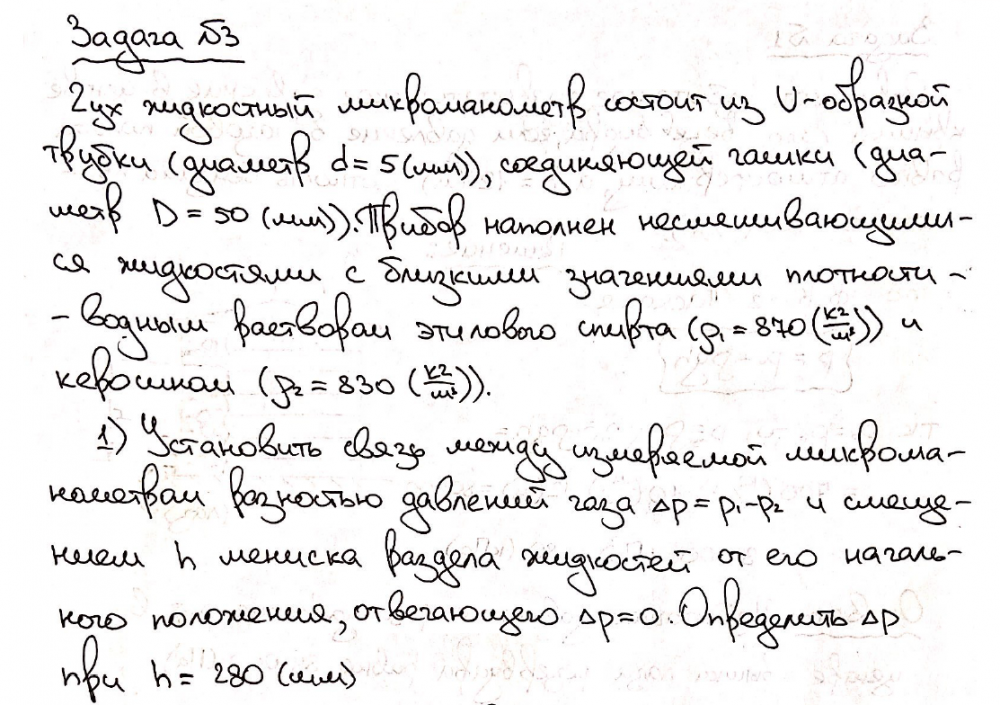 Задача №3
2ух жидкостный микроманометр состоит из U-образной
трубки (диаметр d= 5(мм)), соединяющей чашки (диа-
метр D = 50 (мм)). Прибор наполнен несмешивающими-
ся жидкостями с близкими значениями плотности -
- водным раствором этилового спирта (ρ₁ = 870 (кг/м³)) и
керосином (ρ₂ = 830 (кг/м³)).
1) Установить связь между измеряемой микрома-
нометром разностью давлений газа Δp = p₁-p₂ и смеще-
нием h мениска раздела жидкостей от его началь-
ного положения, отвечающего Δp=0. Определить Δp
при h = 280 (мм)